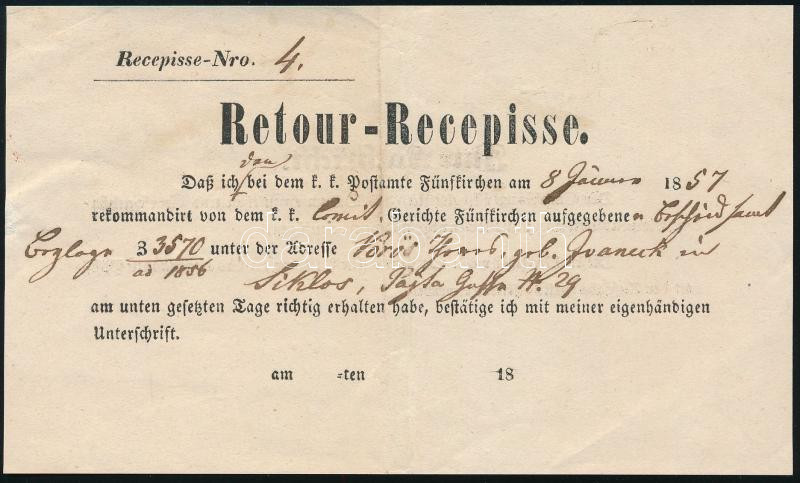 Recepisse-Nro. 4.
Retour-Recepisse.
den
Daß ich bei dem k. k. Postamte Fünfkirchen am 8 Jänner 1857
rekommandirt von dem k. k. Comit. Gerichte Fünfkirchen aufgegebenen Bescheid samt
3 3570 unter der Adresse geb. Ivaneck in
ad 1856
Siklos, Gasse N. 29
am unten gesetzten Tage richtig erhalten habe, bestätige ich mit meiner eigenhändigen
Unterschrift.
am -ten 18
darabanth